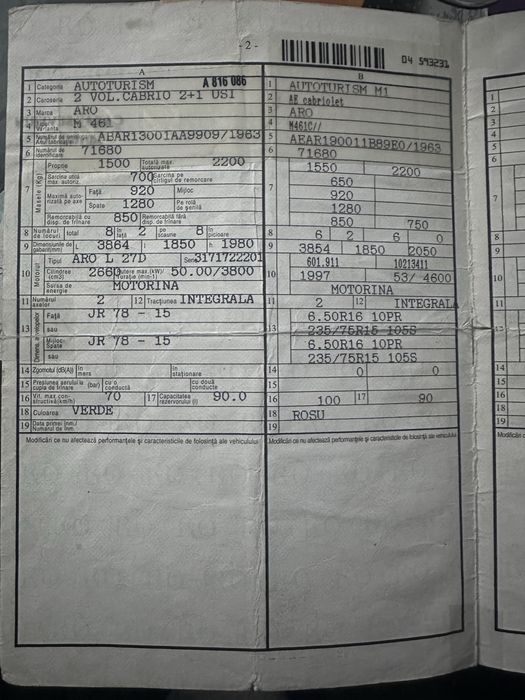 - 2 -
04 593231
A
B
1 Categoria AUTOTURISM A 816 086
1 AUTOTURISM M1
2 Caroseria 2 VOL.CABRIO 2+1 USI
2 AE cabriolet
3 Marca ARO
3 ARO
4 Tipul Varianta M 461
4 M461C//
5 Numărul de omologare Anul fabricației ABAR13001AA9909/1963
5 AEAR190011B89E0/1963
6 Numărul de identificare 71680
6 71680
7 Masele (Kg) Proprie 1500 Totală max. autorizată 2200
7 1550 2200
Sarcina utilă max. autoriz. 700 Sarcina pe cârligul de remorcare
650
Maximă autorizată pe axe Față 920 Mijloc
920
Spate 1280 Pe rolă de șenilă
1280
Remorcabilă cu disp. de frînare 850 Remorcabilă fără disp. de frînare
850 750
8 Numărul de locuri total 8 în față 2 pe scaune 8 în picioare
8 6 2 6 0
9 Dimensiunile de gabarit(mm) L 3864 l 1850 h 1980
9 3854 1850 2050
10 Motorul Tipul ARO L 27D Seria 3171722201
10 601.911 10213411
Cilindree (cm3) 2660 Putere max.(kW)/ Turație (min-1) 50.00/3800
1997 53/ 4600
Sursa de energie MOTORINA
MOTORINA
11 Numărul axelor 2 12 Tracțiunea INTEGRALA
11 2 12 INTEGRALA
13 Dimens. anvelopelor Față JR 78 - 15
13 6.50R16 10PR
sau
235/75R15 105S
Mijloc- Spate JR 78 - 15
6.50R16 10PR
sau
235/75R15 105S
14 Zgomotul (dB(A)) în mers în staționare
14 0 0
15 Presiunea aerului la cupla de frînare (bar) cu o conductă cu două conducte
15
16 Vit. max constructivă(km/h) 70 17 Capacitatea rezervorului (l) 90.0
16 100 17 90
18 Culoarea VERDE
18 ROSU
19 Data primei înm./ Numărul de înm.
19
Modificări ce nu afectează performanțele și caracteristicile de folosință ale vehiculului
Modificări ce nu afectează performanțele și caracteristicile de folosință ale vehiculului
1
2
3
4
5
6
7
8
9
10
11
13
14
15
16
18
19
Modificări c